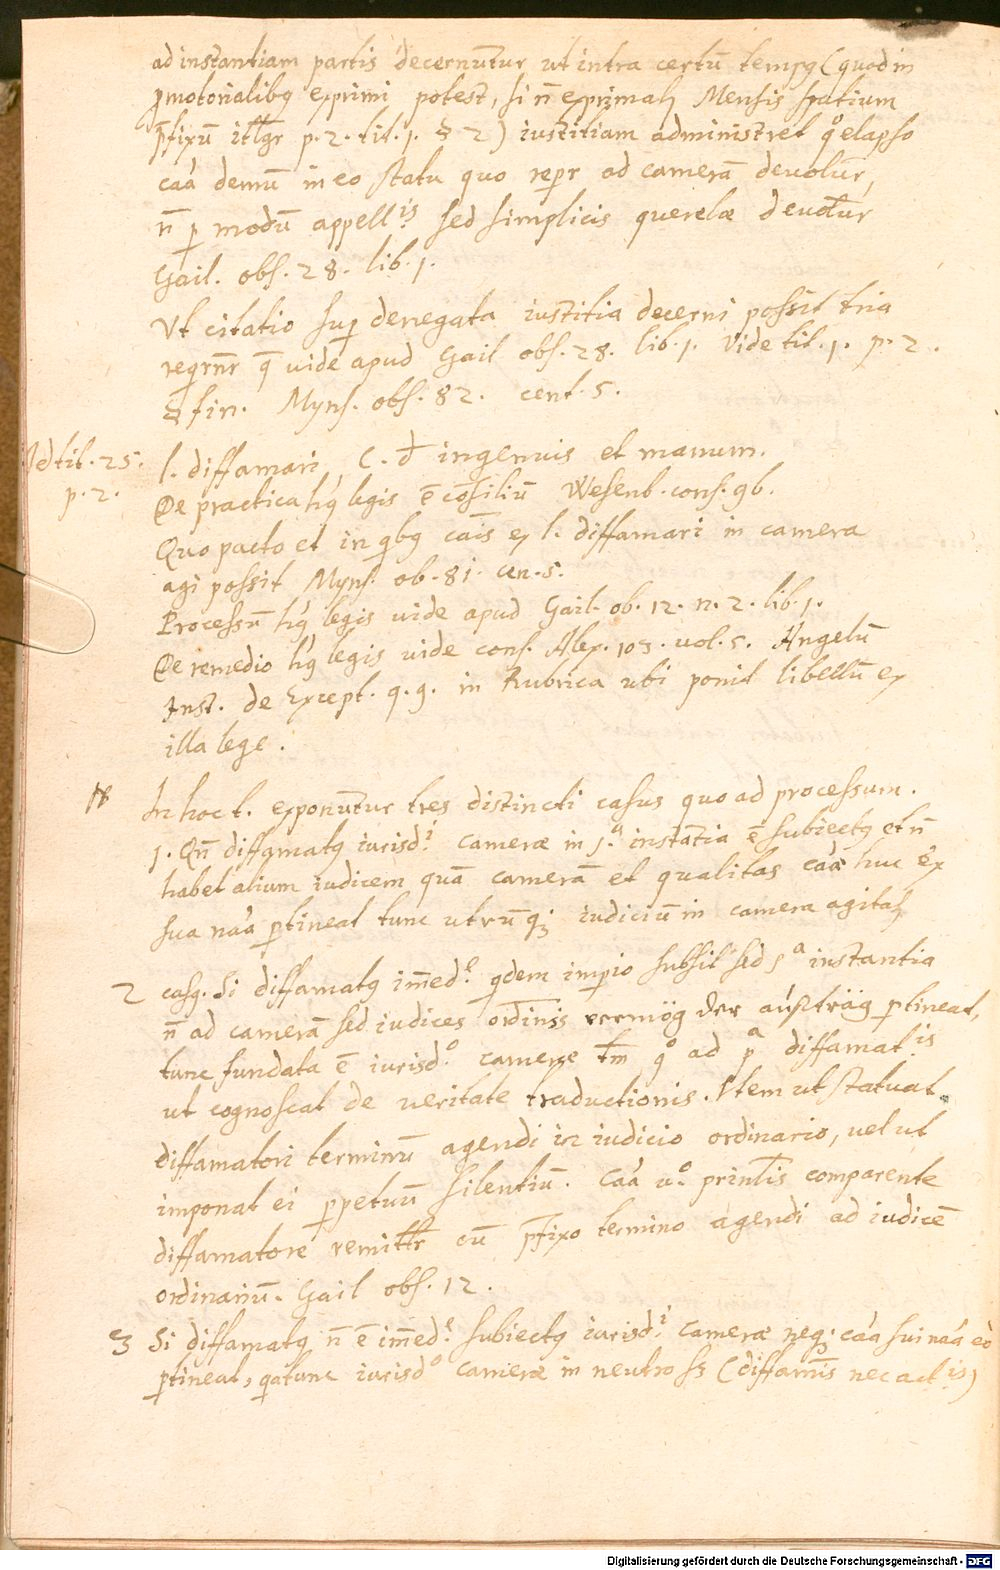 ad instantiam partis decernuntur ut intra certū tempq (quod in
pmotorialibq exprimi potest, si n̄ exprimat₂ Mensis spatium
p̄fixū itllgr p. 2. tit. 1. § 2) iustitiam administret q° elapso
caa demū in eo statu quo reptr ad camerā deuolūr,
n̄ p modū appellis sed simplicis querelæ deuoltur
Gail. obs. 28. lib. 1.
Vt citatio sup denegata iustitia decerni possit tria
reqrnr q̄ uide apud Gail obs. 28. lib. 1. Vide tit. 1. p. 2.
§ fin. Myns. obs. 82. cent. 5.
Ad tit. 25. l. diffamari C. d ingenuis et manum.
p. 2. De practica hq legis ē cōsiliū Wesenb. cons. 96.
Quo pacto et in qbq cais ex l. diffamari in camera
agi possit Myns. ob. 81. cen. 5.
Processū hq legis uide apud Gail. ob. 12. n. 2. lib. 1.
De remedio hq legis uide cons. Alex. 103. vol. 5. Angelū
Inst. de Except. q. 9. in Rubrica ubi ponit libellū ex
illa lege.
In hoc t. exponuntur tres distincti casus quo ad processum.
1. Qn̄ diffamatq iurisdi camere in 1.a instātia ē subiectq et n̄
habet alium iudicem quā camerā et qualitas caa huc ex
sua naa ptineat tunc utrūq; iudiciū in camera agitat₂
2 casq. Si diffamatq im̄ede qdem impio subsit sed 1a instantia
n̄ ad camerā sed iudices ordinis vermög der austräg ptineat,
tunc fundata ē iurisdo camere tm̄ q° ad pa diffamatis
ut cognoscat de ueritate traductionis. Item ut statuat
diffamatori terminū agendi in iudicio ordinario, uel ut
imponat ei ppetuū silentiū. Caa uo printis comparente
diffamatore remittr cū p̄fixo termino agendi ad iudicē
ordinariū. Gail obs. 12.
3 Si diffamatq n̄ ē im̄ede subiectq iurisdi camere neq; caa sui naa eo
ptineat, qa tunc iurisdo camere in neutro ss (diffamis nec actis)
Digitalisierung gefördert durch die Deutsche Forschungsgemeinschaft - DFG